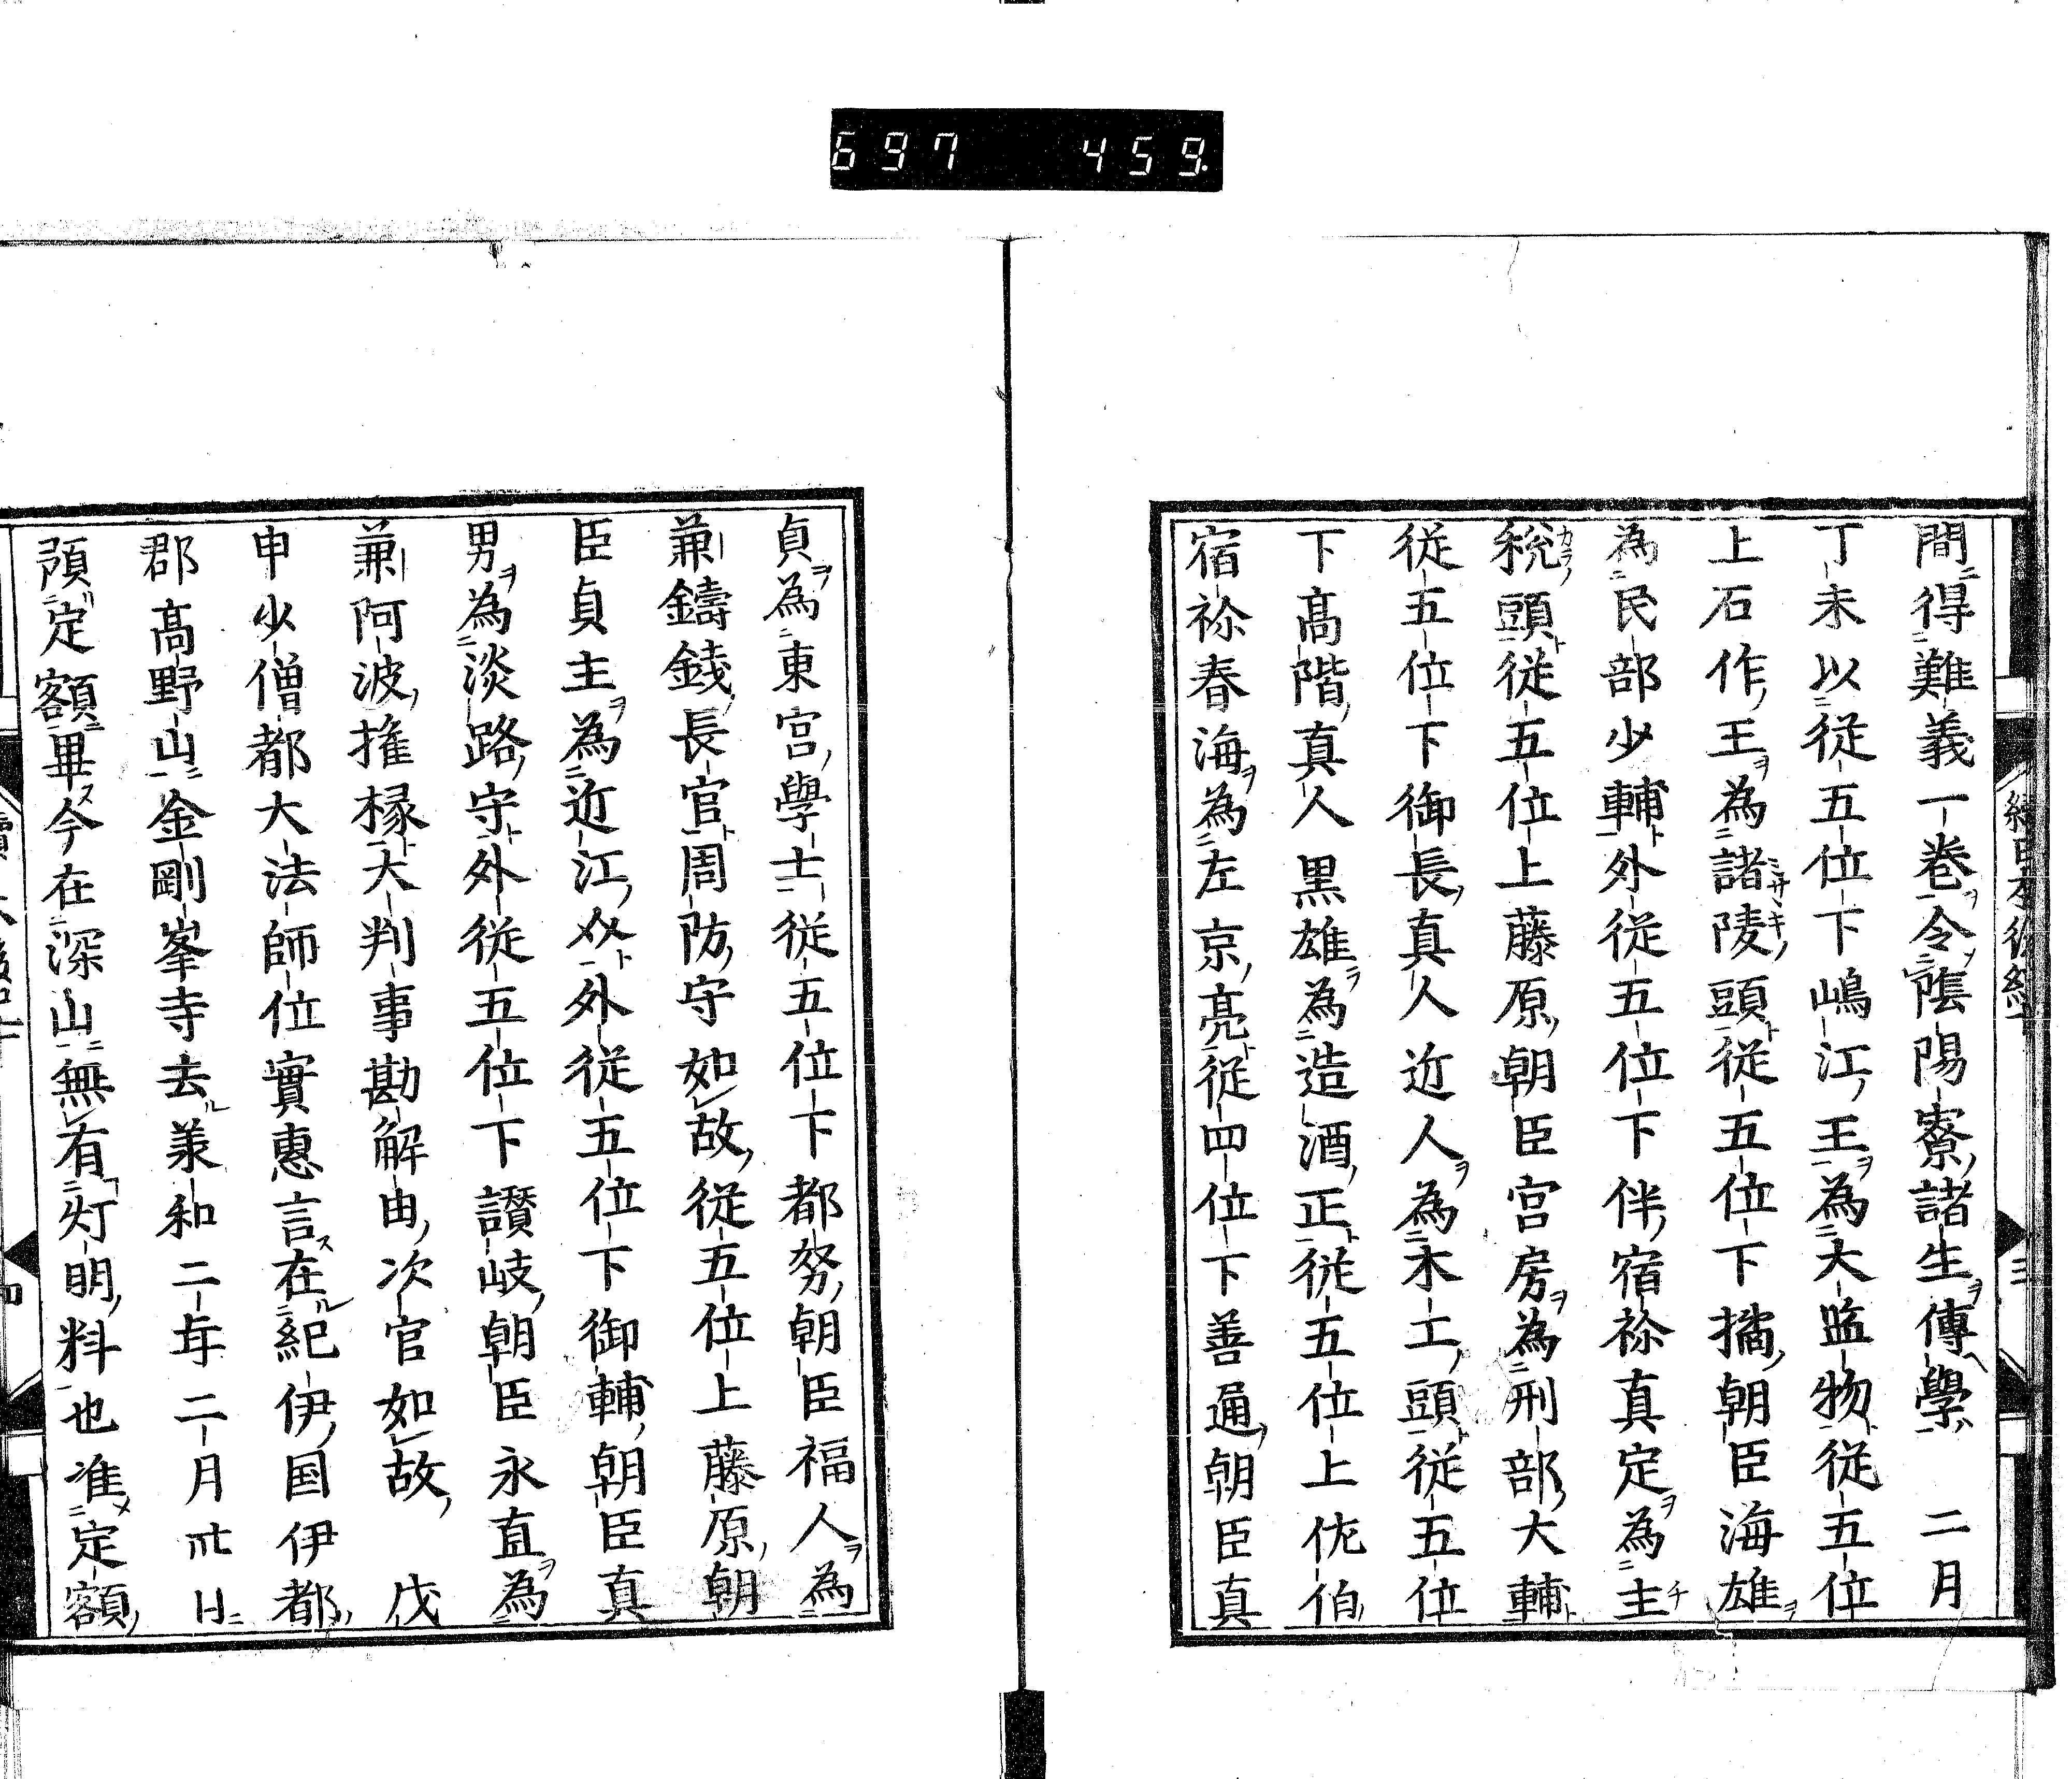 697 459.
間得難義一巻令陰陽寮諸生傳學 二月
丁未以従五位下嶋江王為大監物従五位
上石作王為諸陵頭従五位下橘朝臣海雄
為民部少輔外従五位下伴宿祢真定為主
税頭従五位上藤原朝臣宮房為刑部大輔
従五位下御長真人近人為木工頭従五位
下髙階真人黒雄為造酒正従五位上佐伯
宿祢春海為左京亮従四位下善通朝臣真
貞為東宮學士従五位下都努朝臣福人為
兼鑄錢長官周防守如故従五位上藤原朝
臣貞主為近江介外従五位下御輔朝臣真
男為淡路守外従五位下讃岐朝臣永直為
兼阿波權掾大判事勘解由次官如故 戊
申少僧都大法師位實惠言在紀伊国伊都
郡髙野山金剛峯寺去羕和二年二月卅日
預定額畢今在深山無有灯明料也准定額